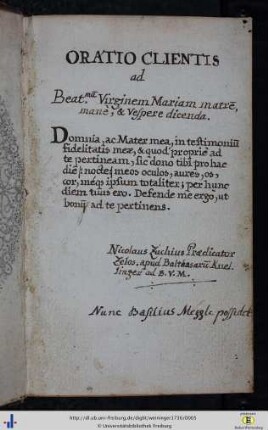 ORATIO CLIENTIS
ad
Beat.mā Virginem Mariam matrē,
mane, & Vespere dicenda.
Domnia, ac Mater mea, in testimoniū
fidelitatis meæ, & quod propriè ad
te pertineam, sic dono tibi pro hac
die meos oculos, aures, os,
cor, meq; ipsum totaliter; per hunc
diem tuus ero. Defende me ergo, ut
bonū ad te pertinens.
Nicolaus Zuchius Prædicator
Zelos. apud Balthasarū Knel-
linger ad B. V. M.
Nunc Basilius Meggle possidet
http://dl.ub.uni-freiburg.de/diglit/weininger1736/0005
© Universitätsbibliothek Freiburg